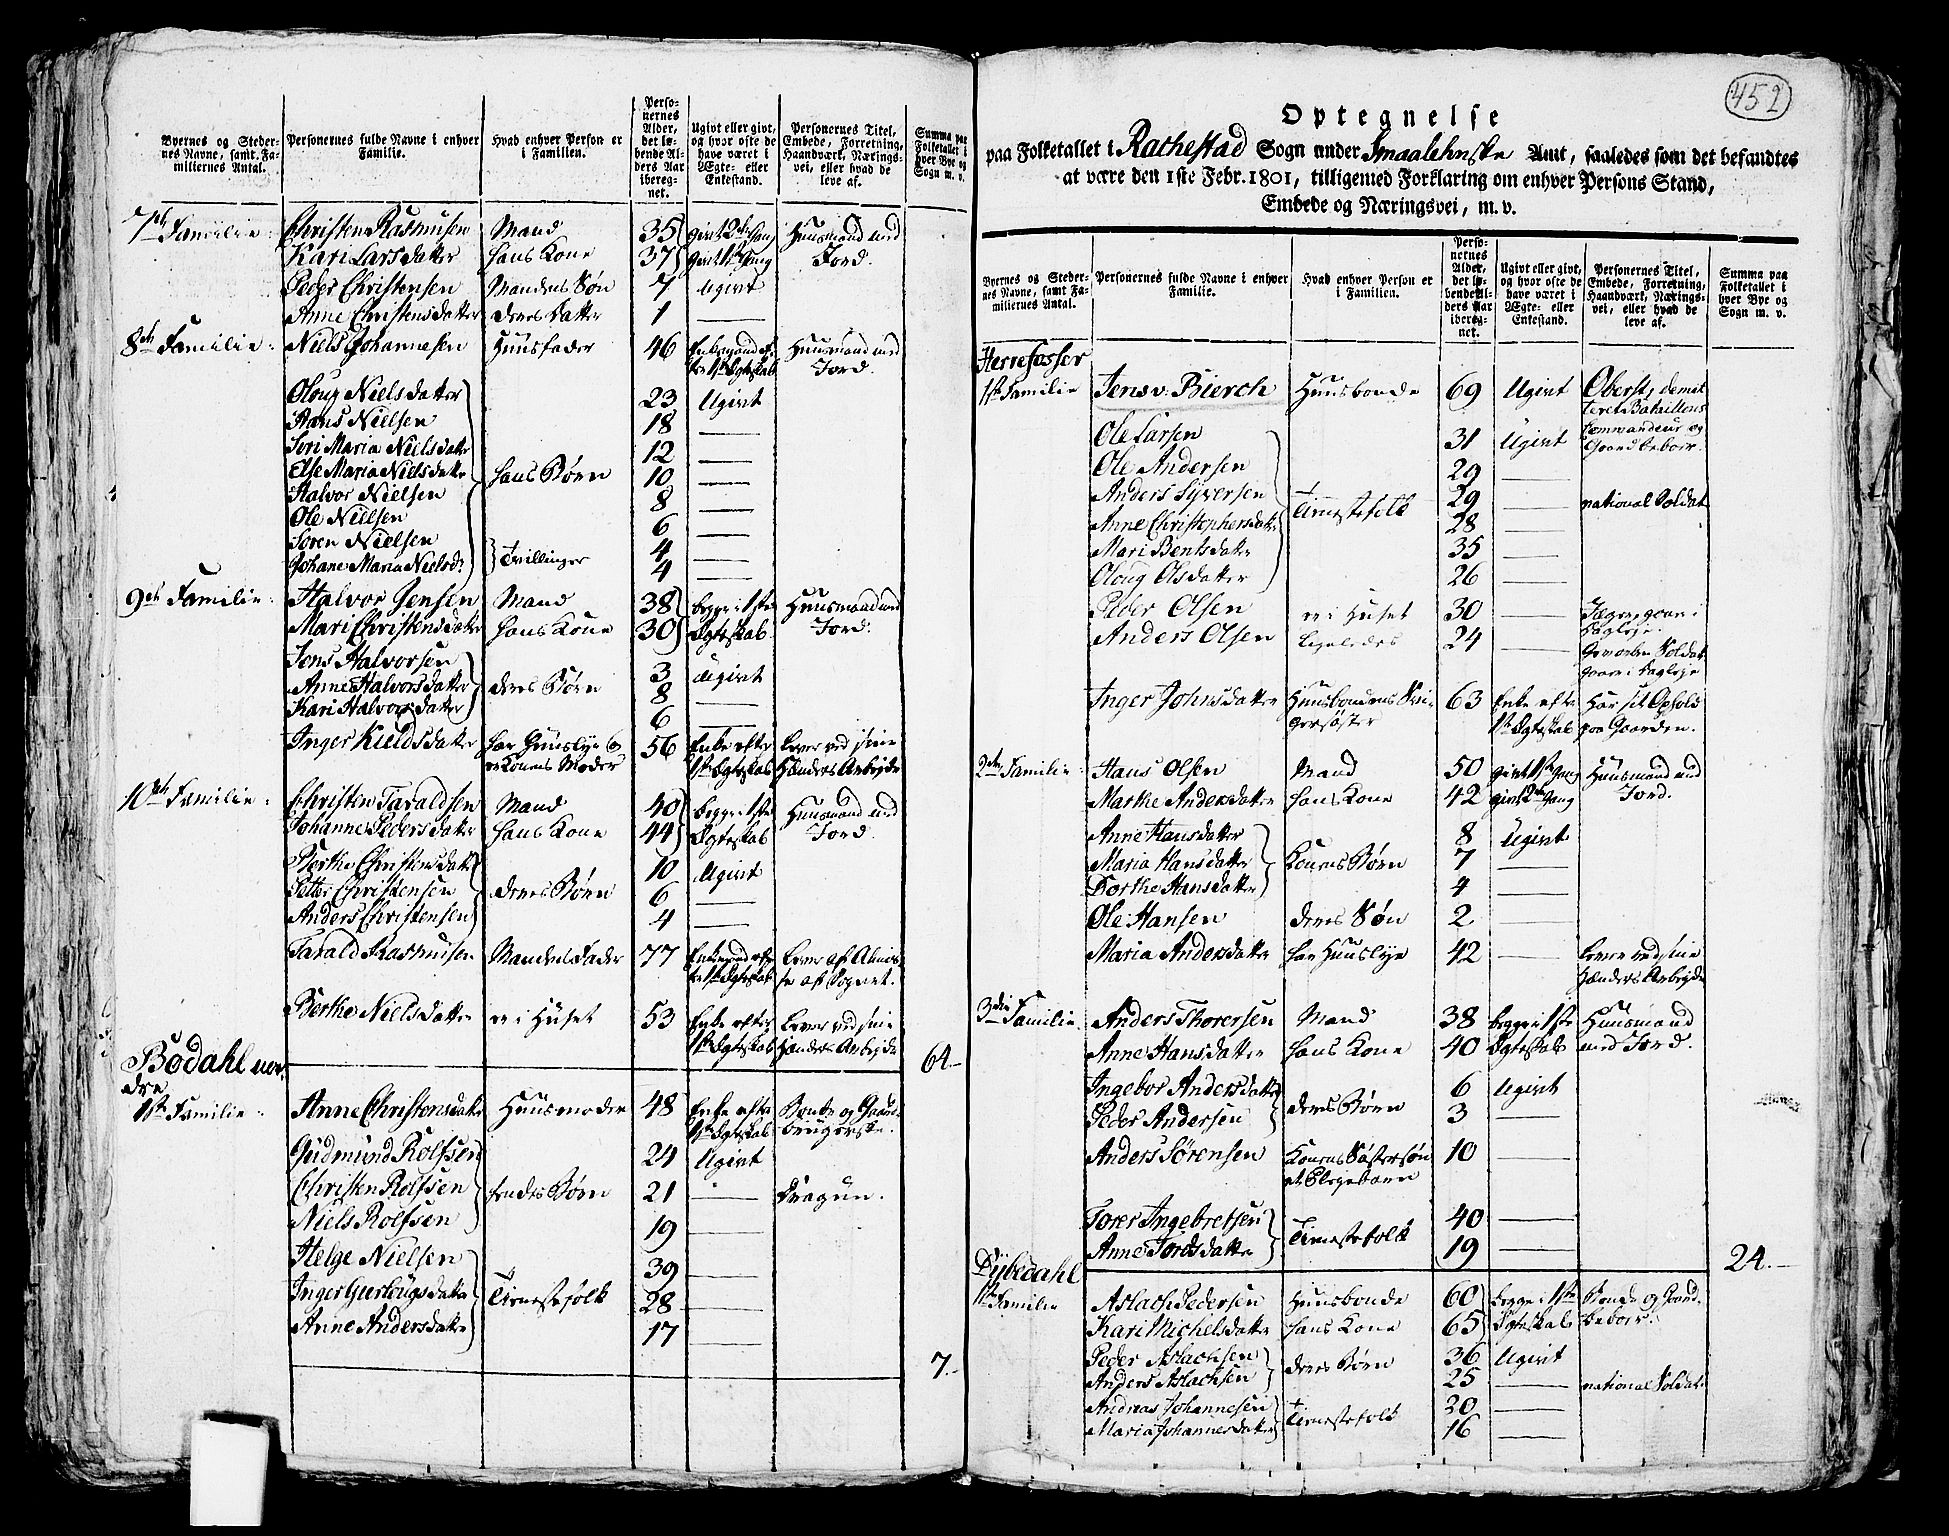 Byernes og Steder-
nes Navne, samt Fa-
miliernes Antal.
Personernes fulde Navne i enhver
Familie.
Hvad enhver Person er
i Familien.
Perso-
nernes
Alder,
det lø-
bende Al-
ders Aar
ibereg-
net.
Ugivt eller givt,
og hvor ofte de
have været i
Ægte- eller
Enkestand.
Personernes Titel,
Embede, Forretning,
Haandværk, Nærings-
vei, eller hvad de
leve af.
Summa paa
Folketallet i
hver Bye og
Sogn m. v.
7de Familie Christen Rasmusen Mand 35 givt 2den Gang Huusmand med
Kari Larsdatter hans Kone 37 givt 1ste Gang Jord.
Peder Christensen Mandens Søn 7 Ugivt
Anne Christensdatter deres Datter 1 —
8de Familie Niels Johannesen Huusfader 46 Enkemand ef- Huusmand med
ter 1ste Ægteskab Jord.
Oloug Nielsdatter 23 Ugivt
Hans Nielsen 18 —
Siri Maria Nielsdatter 12 —
Else Maria Nielsdatter hans Børn 10 —
Halvor Nielsen 8 —
Ole Nielsen 6 —
Søren Nielsen 4 —
Johane Maria Nielsd. Tvillinger 4 —
9de Familie Halvor Jensen Mand 38 begge i 1ste Huusmand med
Mari Christensdatter hans Kone 30 Ægteskab. Jord.
Jens Halvorsen 3 Ugivt
Anne Halvorsdatter deres Børn 8 —
Kari Halvorsdatter 6 —
Inger Kieldsdatter har Huuslye og 56 Enke efter lever ved sine
er Konens Moder 1ste Ægteskab Hænders Arbejde
10de Familie Christen Taraldsen Mand 40 begge i 1ste Huusmand med
Johanne Pedersdatter hans Kone 44 Ægteskab Jord
Berthe Christensdatter 10 Ugivt
Petter Christensen deres Børn 6 —
Anders Christensen 4 —
Tarald Rasmusen Mandens Fader 77 Enkemand ef- lever af Almis-
ter 1ste Ægteskab se af Sognet.
Berthe Nielsdatter er i Huset 53 Enke efter lever ved sine
1ste Ægteskab Hænders Arbejde
64
Bødahl nor-
dre
1ste Familie Anne Christensdatter Huusmoder 48 Enke efter Bonde og Gaard-
1ste Ægteskab brugerske.
Gudmund Rolfsen 24 Ugivt
Christen Rolfsen hendes Børn 21 — Dragun.
Niels Rolfsen 19 —
Helge Nielsen 39 —
Inger Guulougsdatter Tienestefolk 28 —
Anne Andersdatter 17 —
7.
452
Optegnelse
paa Folketallet i Rathestad Sogn under Smaalehnske Amt, saaledes som det befandtes
at være den 1ste Febr. 1801, tilligemed Forklaring om enhver Persons Stand,
Embede og Næringsvei, m. v.
Byernes og Steder-
nes Navne, samt Fa-
miliernes Antal.
Personernes fulde Navne i enhver
Familie.
Hvad enhver Person er
i Familien.
Perso-
nernes
Alder,
det lø-
bende Al-
ders Aar
ibereg-
net.
Ugivt eller givt,
og hvor ofte de
have været i
Ægte- eller
Enkestand.
Personernes Titel,
Embede, Forretning,
Haandværk, Nærings-
vei, eller hvad de
leve af.
Summa paa
Folketallet i
hver Bye og
Sogn m. v.
Herrefosser
1ste Familie Jens v. Bierch Huusbonde 69 Ugivt Oberst, demit-
teret Bataillons
Ole Larsen 31 Ugivt Commandeur og
Gaardbeboer.
Ole Andersen 29 —
Anders Syversen Tienestefolk 29 — national Soldat
Anne Christophersdatter 28 —
Mari Bentsdatter 35 —
Oloug Olsdatter 26 —
Peder Olsen er i Huset 30 — Jæger, gaar i
Dagleje.
Anders Olsen ligeledes 24 — Geworben Soldat
gaar i Dagleje
Inger Johnsdatter Huusbondens Svi- 63 Enke efter Har sit Ophold
gersøster 1ste Ægteskab paa Gaarden.
2den Familie Hans Olsen Mand 50 givt 1ste Gang Huusmand med
Marthe Andersdatter hans Kone 42 givt 2den Gang Jord.
Anne Hansdatter 8 Ugivt
Maria Hansdatter Konens Børn 7 —
Dorthe Hansdatter 4 —
Ole Hansen deres Søn 2 —
Maria Andersdatter har Huuslye 42 — lever ved sine
Hænders Arbejde
3die Familie Anders Thorersen Mand 38 begge i 1ste Huusmand
Anne Hansdatter hans Kone 40 Ægteskab med Jord.
Ingebor Andersdatter 6 Ugivt
Peder Andersen deres Børn 3 —
Anders Sørensen Konens Søstersøn 10 —
et Plejebarn
Torer Ingebretsen 40 —
Anne Tordsdatter Tienestefolk 19 —
24.
Dybedahl
1ste Familie Aslach Pedersen Huusbonde 60 begge i 1ste Bonde og Gaard-
Kari Michelsdatter hans Kone 65 Ægteskab beboer.
Peder Aslachsen deres Børn 36 Ugivt
Anders Aslachsen 25 — national Soldat
Andreas Johannesen Tienestefolk 20 —
Maria Johannesdatter 16 —